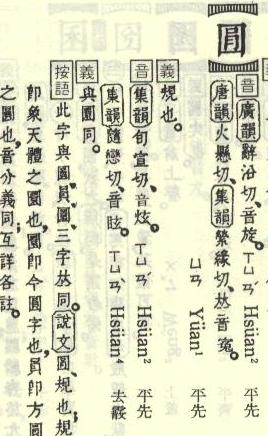 音 廣韻辭沿切、音旋。ㄒㄩㄢˊ Hsüan² 平先
唐韻火懸切、集韻縈緣切、𠀤音寃。
ㄩㄢ Yüan¹ 平先
義 規也。
音 集韻旬宣切、音炫。ㄒㄩㄢˊ Hsüan² 平先
集韻隨戀切、音眩。ㄒㄩㄢˋ Hsüan⁴ 去霰
義 與圓同。
按語 此字與圓、員、圜、三字𠀤同。說文圓、規也；規
即象天體之圜也，圜即今圓字也，員即方圓
之圓也，音分義同，互詳各註。